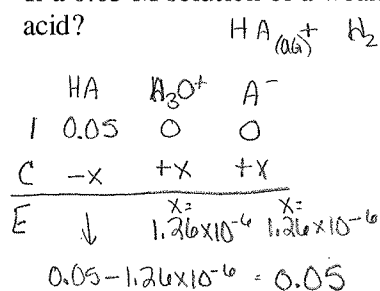 acid?
HA(aq) + H₂
HA H₃O⁺ A⁻
I 0.05 0 0
C -x +x +x
E ↓ x= 1.26x10⁻⁶ x= 1.26x10⁻⁶
0.05-1.26x10⁻⁶ = 0.05